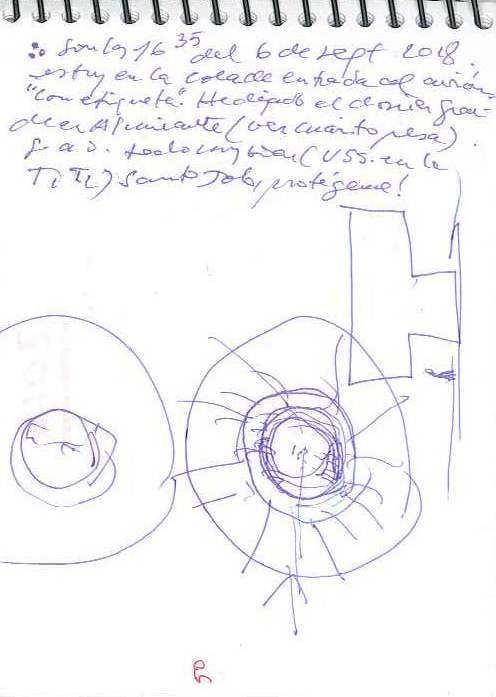 Son las 16 35 del 6 de sept 2018.
estoy en la cola de entrada al avión
"con etiqueta". He dejado el dossier gran-
de en (ver cuánto pesa).
G. a D. todo muy bien (USS. en la
T1 T2) Santo Job, protégeme!